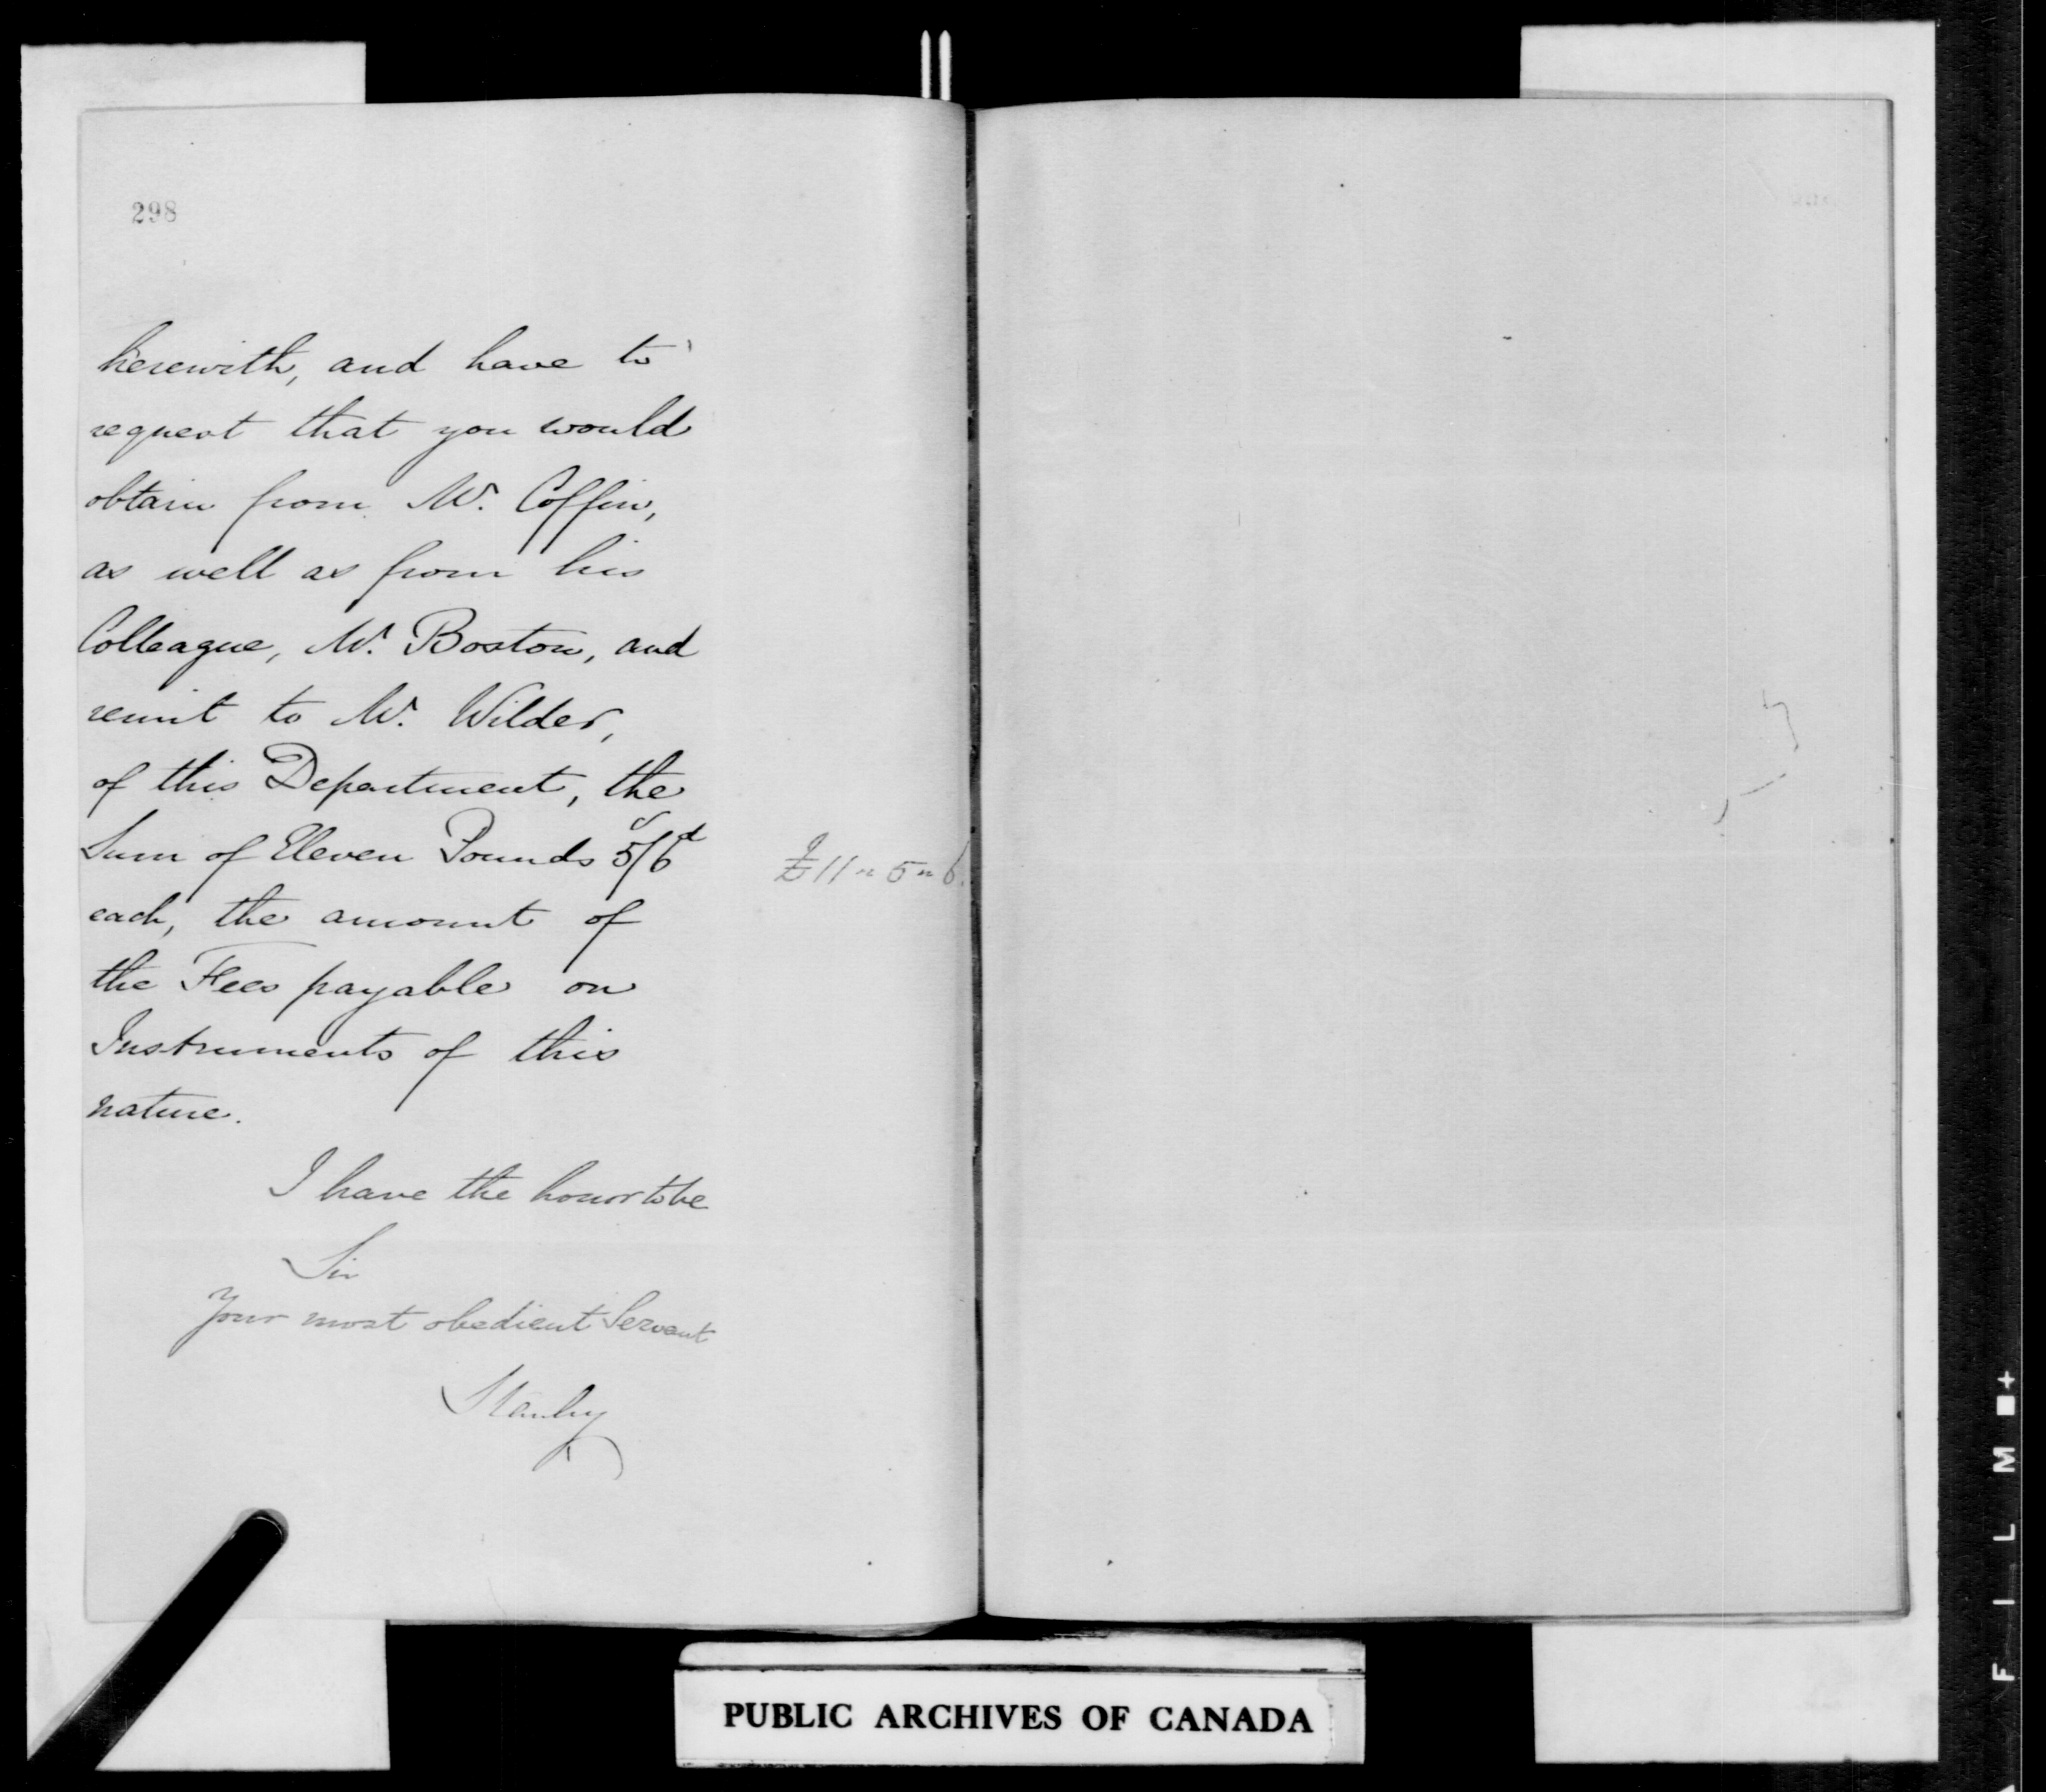 298
herewith, and have to
request that you would
obtain from Mr. Coffin,
as well as from his
Colleague, Mr. Boston, and
remit to Mr. Wilder,
of this Department, the
Sum of Eleven Pounds 5s/6d
each, the amount of
the Fees payable on
Instruments of this
nature.
£11 " 5 " 6.
I have the honor to be
Sir
Your most obedient Servant
Stanley
PUBLIC ARCHIVES OF CANADA
FILM